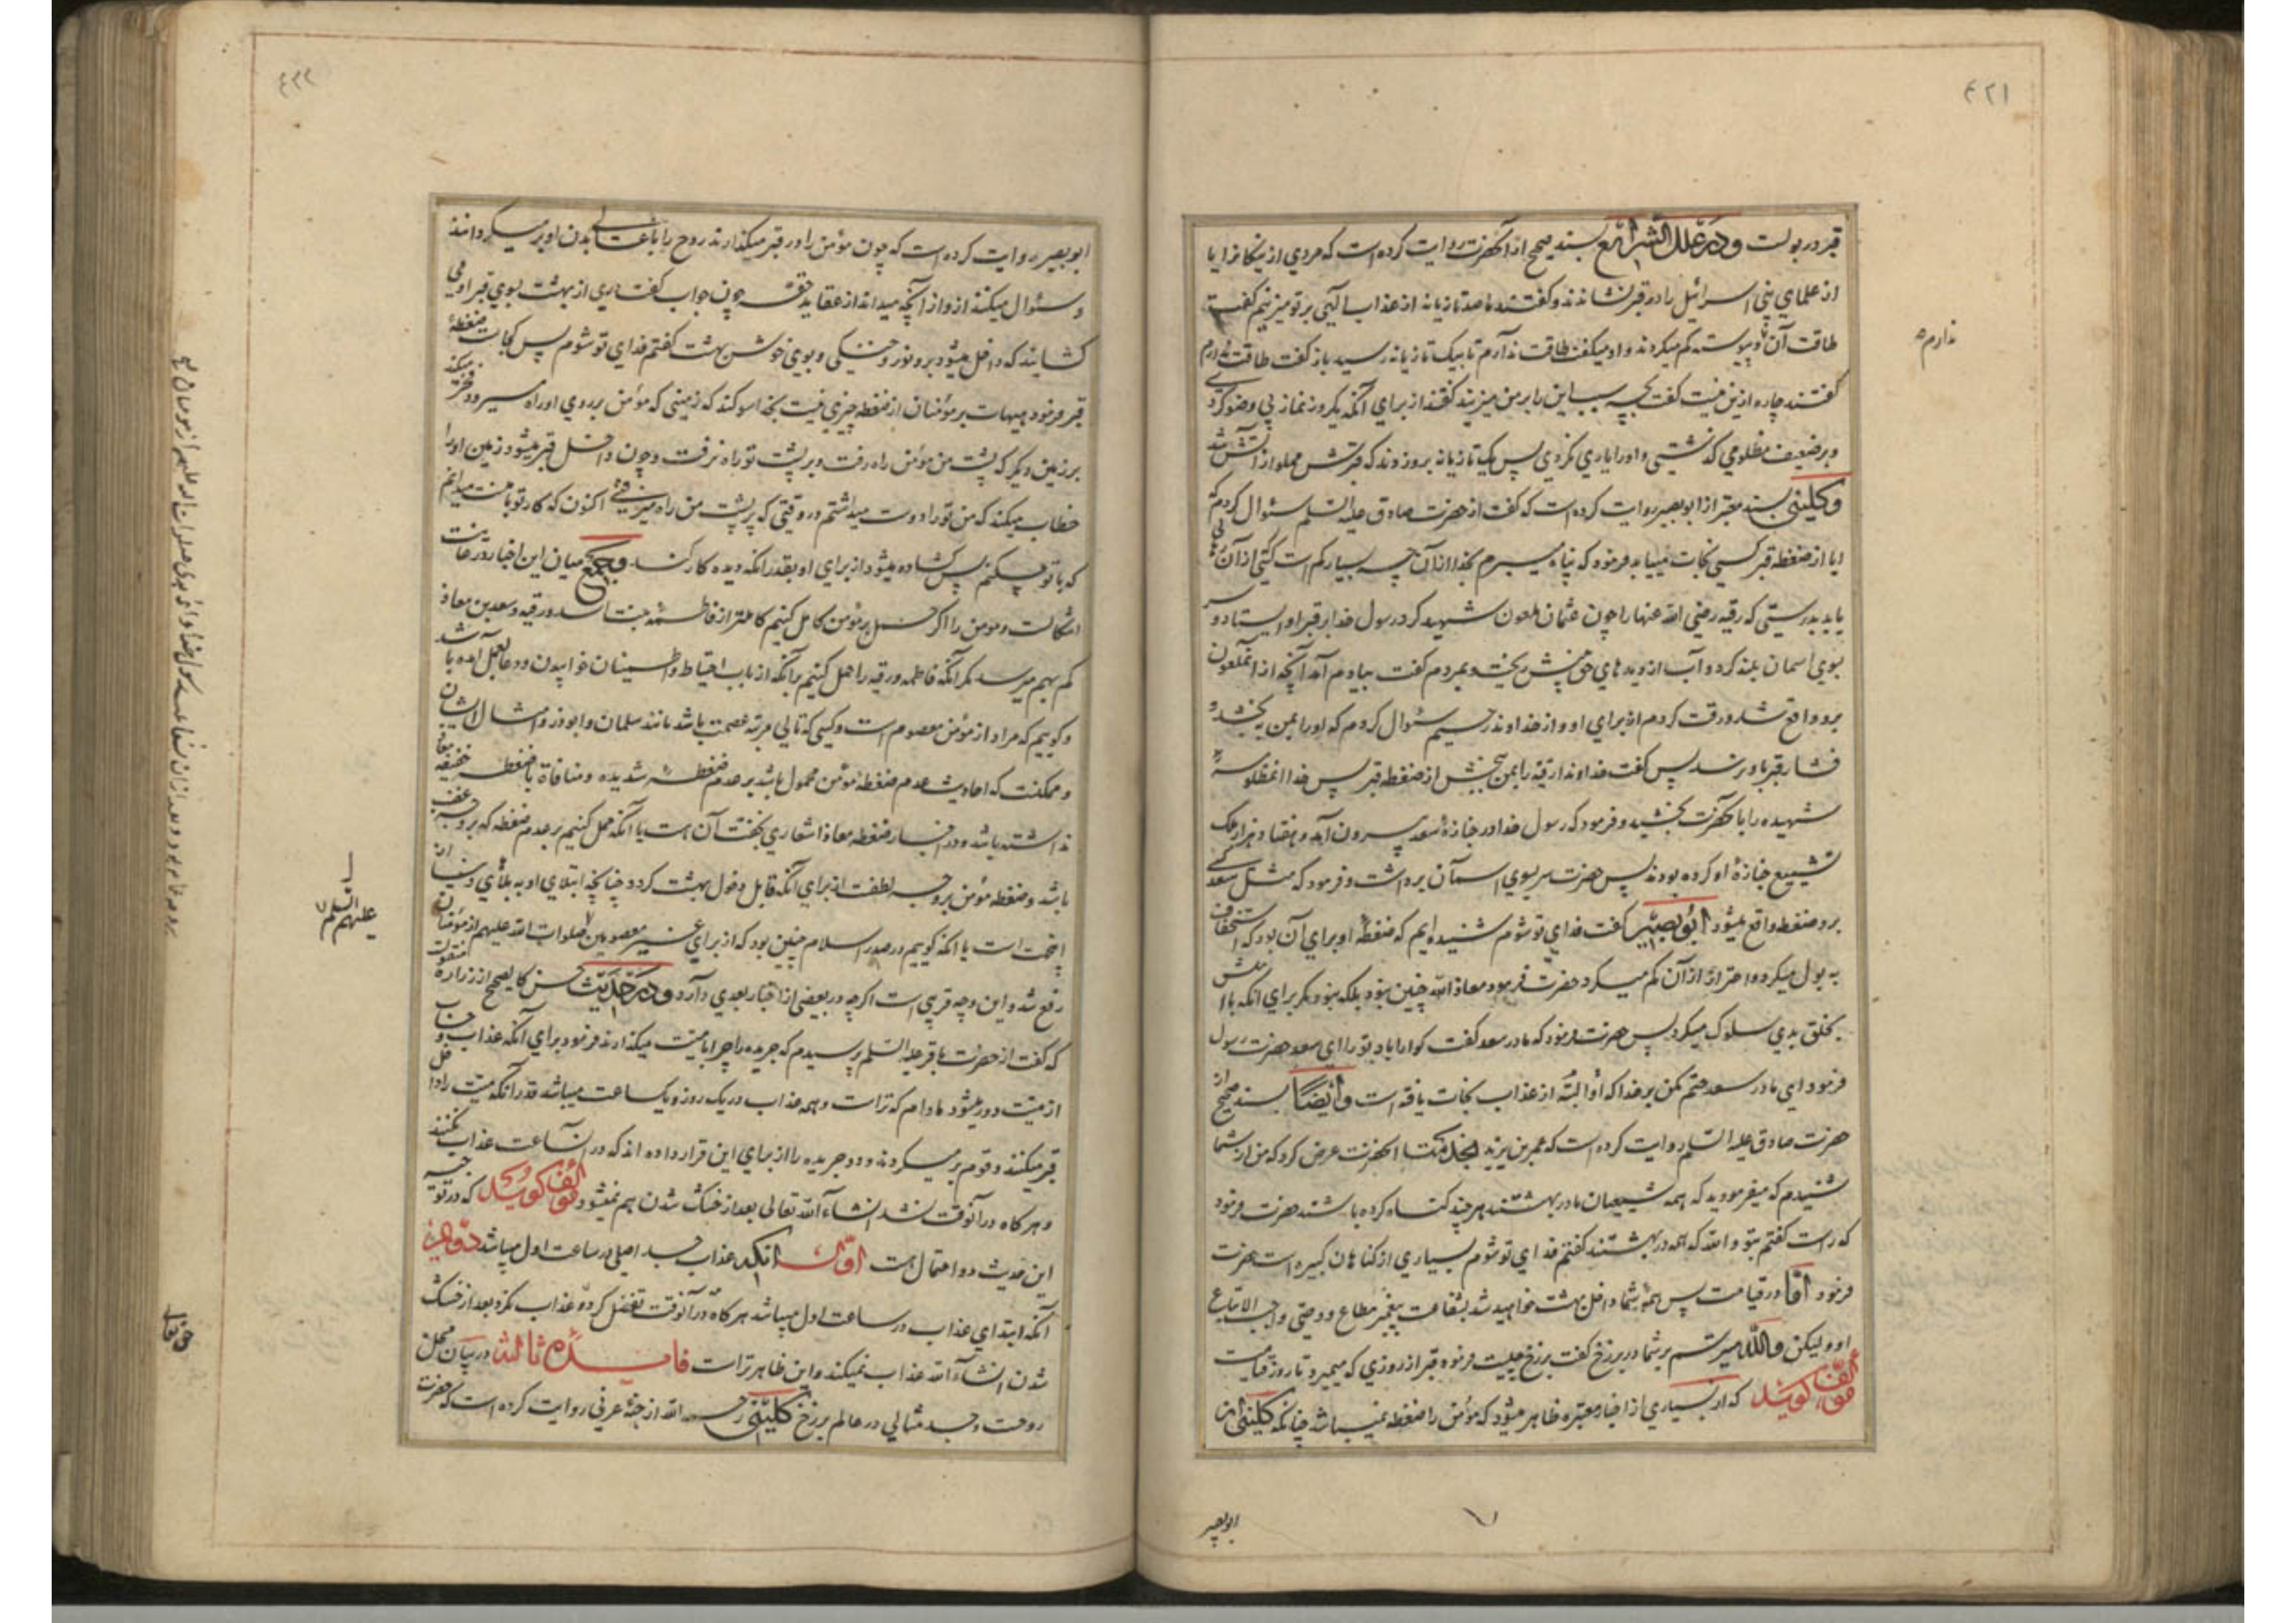 ٤٢١
قبر در بولست ودر علل الشرایع بسند صحیح از آنحضرت روایت کرده است که مردی از نیکان یا
از علمای بنی اسرائیل را در قبر نشاندند و گفتند ما صد تازیانه از عذاب الهی بر تو میزنیم گفت
طاقت آن پیوسته کم میکردند و او میگفت طاقت ندارم تا بیک تازیانه رسید باز گفت طاقت ندارم
ندارم
گفتند چاره ازین نیست گفت بچه سبب این را بر من میزنید گفتند از برای آنکه یکروز نماز بی وضو کردی
و بر ضعیف مظلومی گذشتی و اورا یاری نکردی پس یک تازیانه برو زدند که قبرش مملو از آتش شد
وکلینی بسند معتبر از ابو بصیر روایت کرده است که گفت از حضرت صادق علیه السلم سئوال کردم که
ایا از ضغطه قبر کسی نجات مییابد فرمود که پناه میبرم بخدا ازان چه بسیار کم است کسی از آن
یابد بدرستی که رقیه رضی الله عنها را چون عثمان ملعون شهید کرد رسول خدا بر قبر او ایستاد و سر
بسوی آسمان بلند کرد و آب از دیدهای حق بینش ریخت و بمردم گفت بیادم آمد آنچه از آنملعون
برو واقع شد و رقت کردم از برای او و از خداوند رحیم سئوال کردم که اورا بمن بخشد و
فشار قبر باو نرسد پس گفت خداوندا رقیه را بمن ببخش از ضغطه قبر پس خدا آنمظلومه
شهیده را بآنحضرت بخشید و فرمود که رسول خدا در جنازه سعد بیرون آمد و هفتاد هزار ملک
تشییع جنازه او کرده بودند پس حضرت سر بسوی آسمان برداشت و فرمود که مثل سعد کسی
برو ضغطه واقع میشود ابو بصیر گفت فدای تو شوم شنیده ایم که ضغطه او برای آن بود که استخفاف
به بول میکرد و احتراز از آن کم میکرد حضرت فرمود معاذ الله چنین نبود بلکه نبود مگر برای آنکه با اهلش
بخلق بدی سلوک میکرد پس حضرت فرمود که مادر سعد گفت گوارا باد تو را ای سعد حضرت رسول
فرمود ای مادر سعد حتم مکن بر خدا که او البته از عذاب نجات یافته است وایضا بسند صحیح از
حضرت صادق علیه السلم روایت کرده است که عمر بن یزید بخدمت آنحضرت عرض کرد که من از شما
شنیدم که میفرمودید که همه شیعیان ما در بهشتند هر چند گناه کرده باشند حضرت فرمود
که راست گفتم بتو والله که همه در بهشتند گفتم فدای تو شوم بسیاری از گناهان کبیره است حضرت
فرمود اما در قیامت پس همه شما داخل بهشت خواهید شد بشفاعت پیغمبر مطاع و وصی واجب الاتباع
او و لیکن والله میترسم بر شما در برزخ گفت برزخ چیست فرمود قبر از روزی که میمیرد تا روز قیامت
مؤلف گوید که از بسیاری از اخبار معتبره ظاهر میشود که مؤمن را ضغطه نمیباشد چنانکه کلینی از
ابوبصیر
٤٢٢
ابوبصیر روایت کرده است که چون مؤمن را در قبر میگذارند روح را بدن او بر میگردانند
و سئوال میکنند ازو از آنچه میداند از عقاید حقه چون جواب گفت دری از بهشت بسوی قبر او می
گشایند که داخل میشود برو نور و خنکی و بوی خوش بهشت گفتم فدای تو شوم پس کجاست ضغطه
قبر فرمود هیهات بر مؤمنان از ضغطه چیزی نیست بخدا سوگند که زمینی که مؤمن بر روی او راه میرود فخر میکند
بر زمین دیگر که پشت من مؤمن راه رفت و بر پشت تو راه نرفت و چون داخل قبر میشود زمین اورا
خطاب میکند که من تو را دوست میداشتم در وقتی که بر پشت من راه میرفتی اکنون که کار تو با منست میدانم
که با تو چکنم پس گشاده میشود از برای او بقدر آنکه دیده کار کند وجمع میان این اخبار در غایت
اشکالست و مؤمن را اگر حمل بر مؤمن کامل کنیم کاملتر از فاطمه بنت اسد و رقیه و سعد بن معاذ
کم بهم میرسد مگر آنکه فاطمه و رقیه را حمل کنیم بر آنکه از باب احتیاط و اطمینان خوابیدن و دعا بعمل آمده باشد
و گوییم که مراد از مؤمن معصوم است و کسی که تالی مرتبه عصمت باشد مانند سلمان و ابوذر و امثال ایشان
و ممکنست که احادیث عدم ضغطه مؤمن محمول باشد بر عدم ضغطه شدیده و منافاة با ضغطه خفیفه
نداشته باشد و در اخبار ضغطه معاذ اشعاری بخفت آن هست یا آنکه حمل کنیم بر عدم ضغطه که بر وجه غضب
باشد و ضغطه مؤمن بر وجه لطفست از برای آنکه قابل دخول بهشت گردد چنانچه ابتلای او به بلای دنیا از
اینجهت است یا آنکه گوییم در صدر اسلام چنین بود که از برای غیر معصومین صلوات الله علیهم از مؤمنان
علیهم السلم
رفع شد و این وجه قریبی است اگر چه در بعضی از اخبار بعدی دارد ودر حدیث حسن کالصحیح از زراره منقولست
که گفت از حضرت باقر علیه السلم پرسیدم که جریده را چرا با میت میگذارند فرمود برای آنکه عذاب و حساب
از میت دور میشود مادام که تر است و همه عذاب در یک روز و یکساعت میباشد قدر آنکه میت را داخل
قبر میکنند و قوم بر میگردند و دو جریده را از برای این قرار داده اند که در آن ساعت عذاب نکنند
و هر گاه در آنوقت نشد انشاء الله تعالی بعد از خشک شدن هم نمیشود مؤلف گوید که در توجیه
این حدیث دو احتمال هست اول آنکه عذاب جسد اصلی در ساعت اول میباشد دویم
آنکه ابتدای عذاب در ساعت اول میباشد هر گاه در آنوقت تفضل کرده عذاب نکرد بعد از خشک
شدن انشاء الله عذاب نمیکند و این ظاهر تر است فایده ثالثه در بیان محل
روحست و جسد مثالی در عالم برزخ کلینی رحمه الله از حبه عرنی روایت کرده است که حضرت